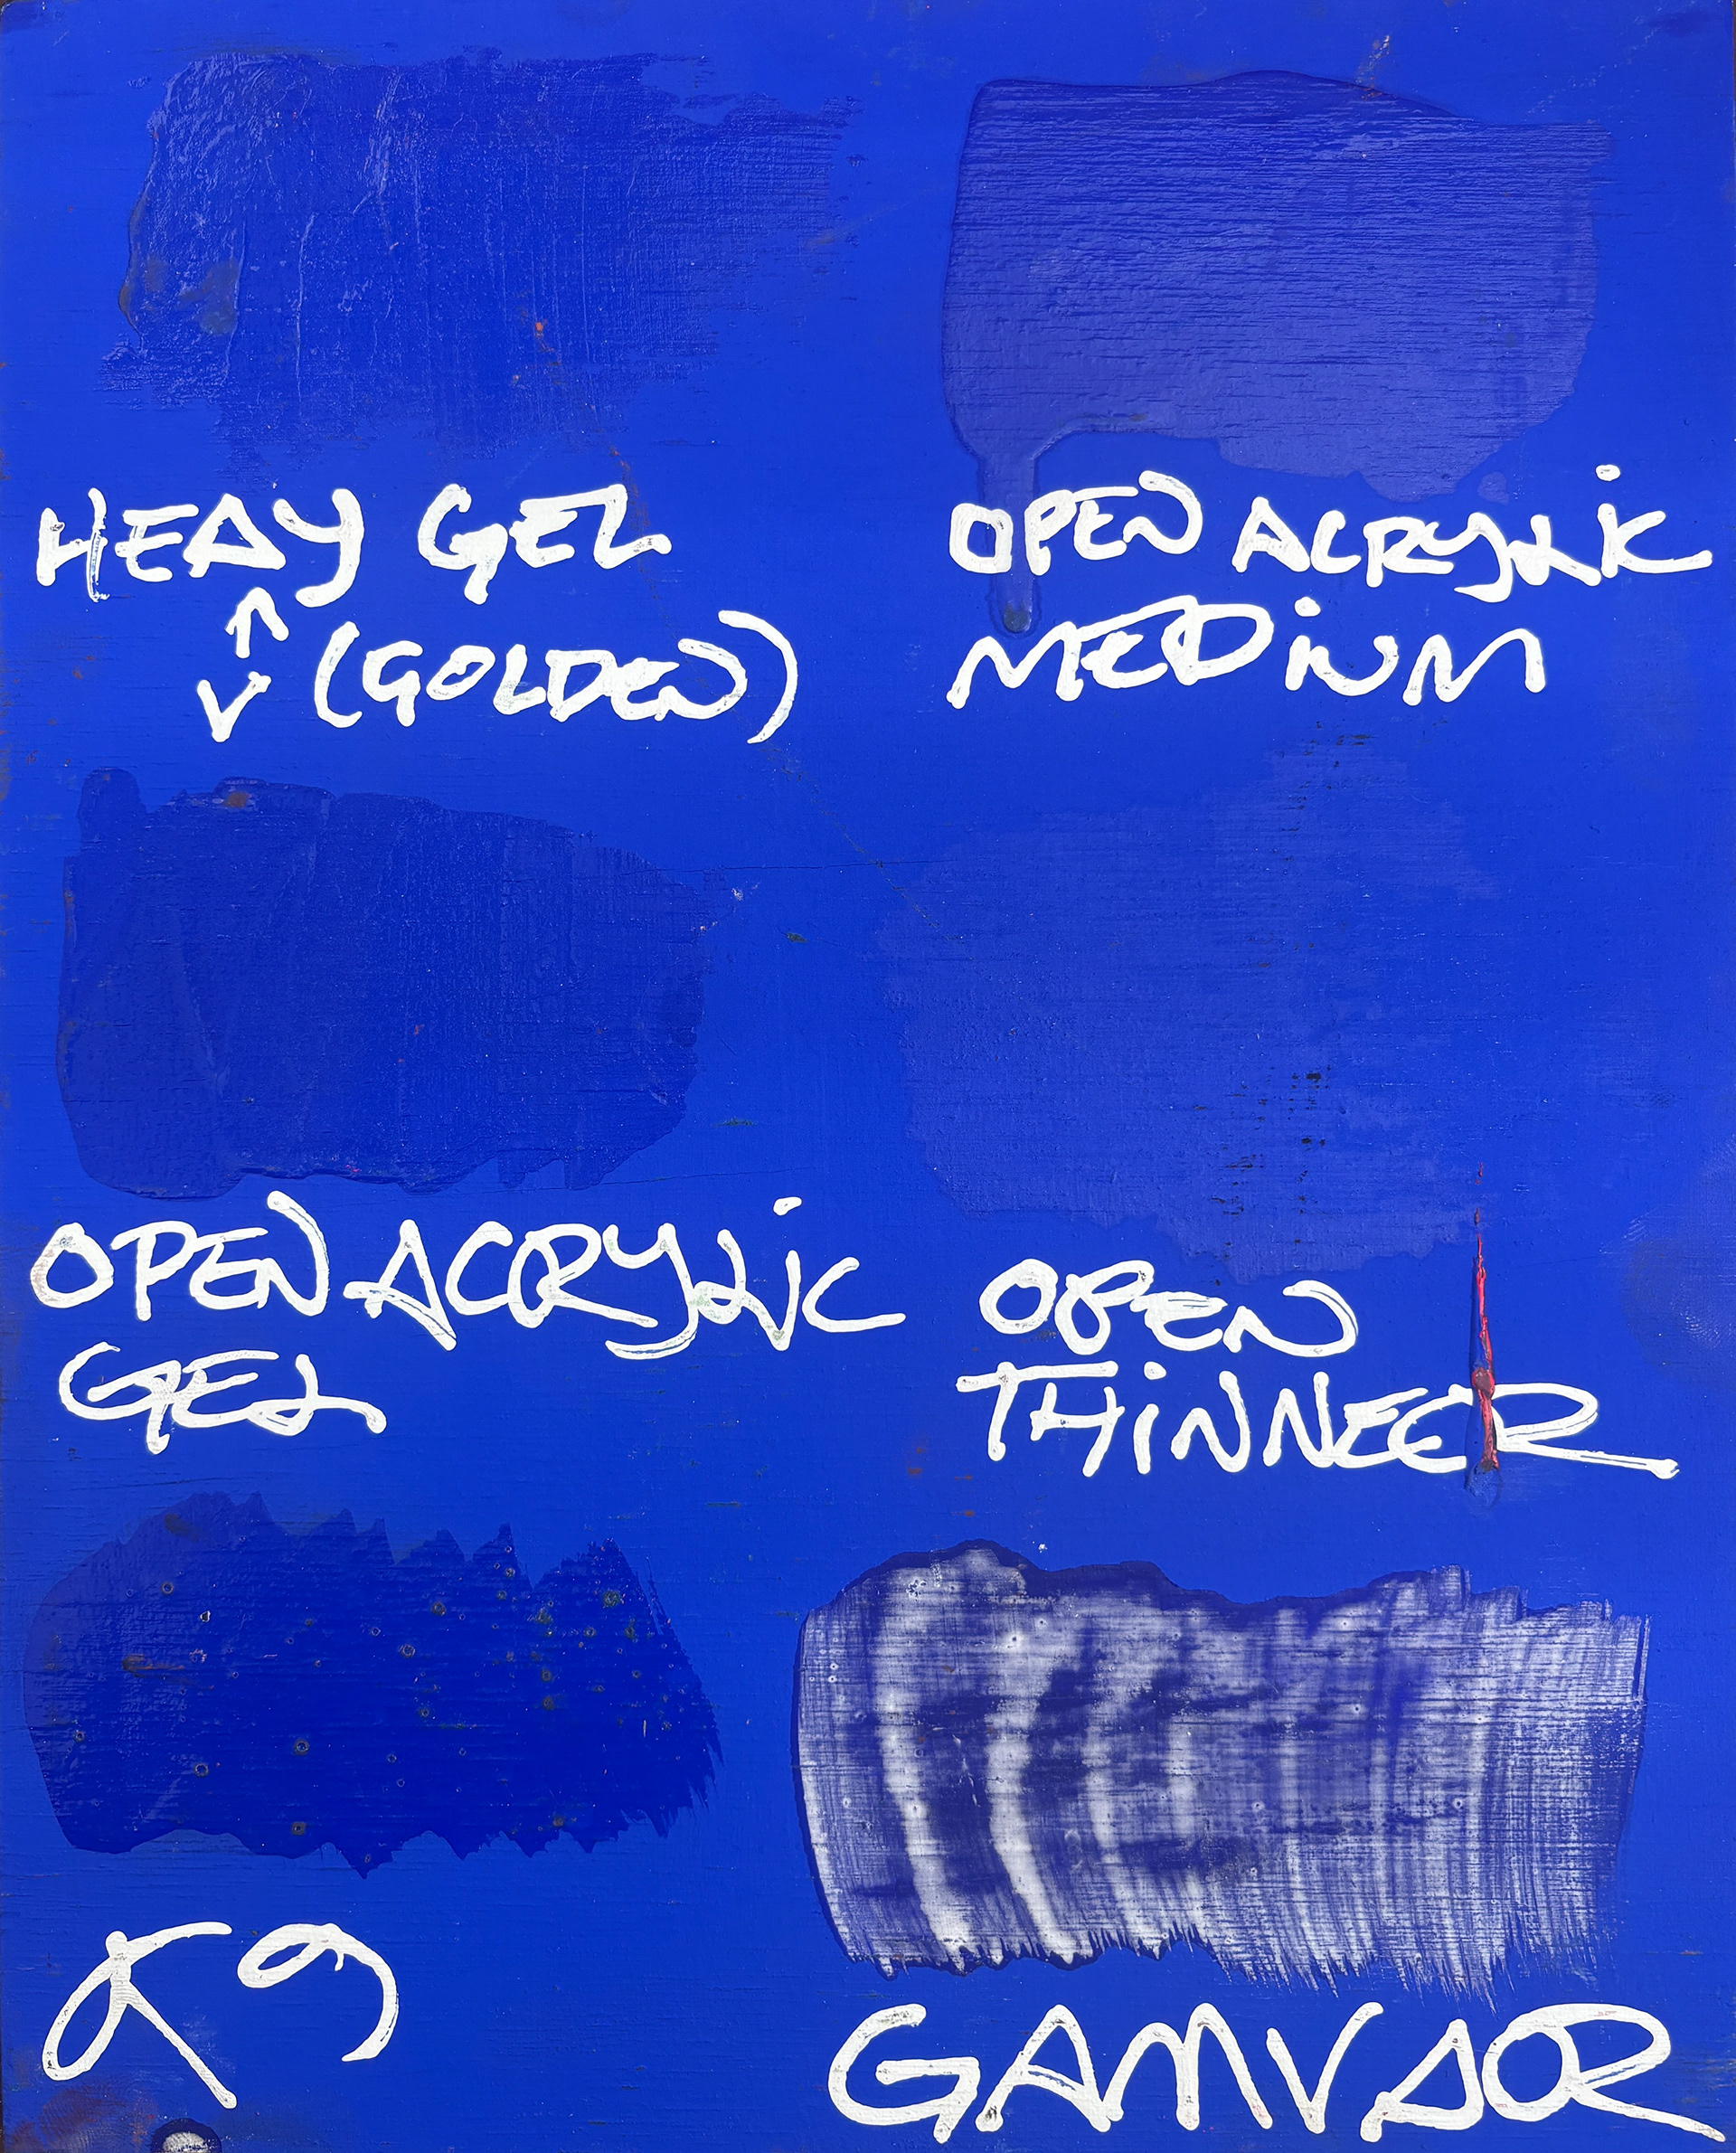 HEAY GEL
^
V (GOLDEN)
OPEN ACRYLIC
MEDIUM
OPEN ACRYLIC
GEL
OPEN
THINNER
K9
GAMVAR